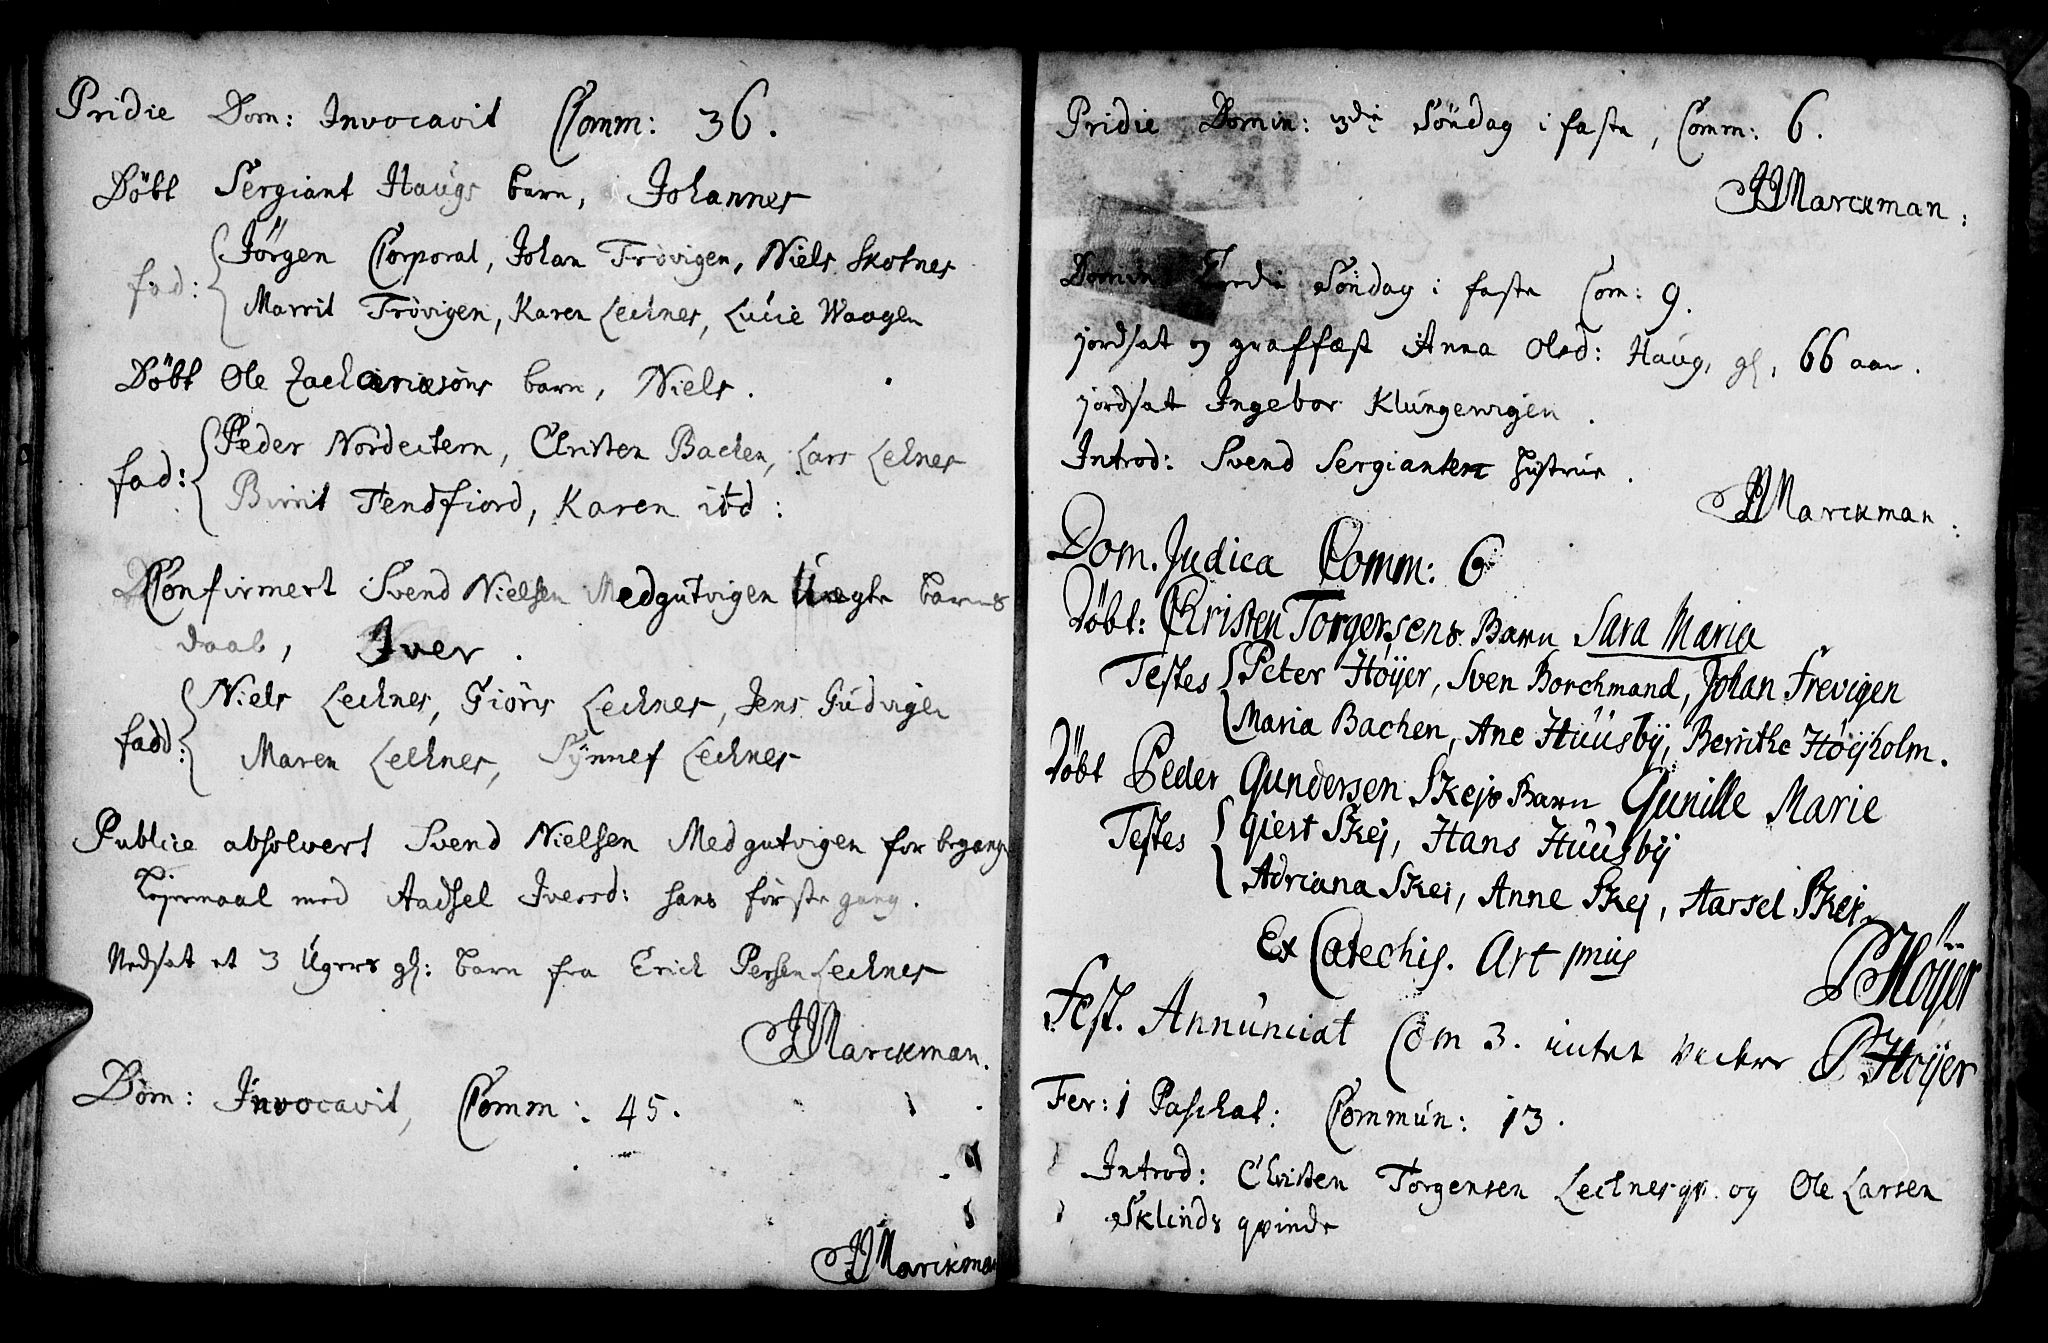 Pridie Dom: Invocavit Comm: 36.
Döbt Sergiant Haugs barn, Johannes
fad: Jörgen Corporal, Johan Trövigen, Niels Skotnes
Marrit Trövigen, Karen Lechnes, Lucie Waagen
Döbt Ole Zachariæsöns barn, Niels.
fad: Peder Nordectern, Christen Bachen, Lars Lechnes
Birrit Tendfiord, Karen itd:
Confirmert Svend Nielsen Medgutvigen Uægte barns
daab, Iver.
fadd: Niels Lechnes, Giörs Lechnes, Jens Gudvigen
Maren Lechnes, Synnef Lechnes
Publice absolvert Svend Nielsen Medgutvigen for begangn
Lejermaal med Aadsel Iversd: hans förste gang.
Nedsat et 3 Ugers gl: barn fra Erich Persen Lechnes
Marckman.
Dom: Invocavit, Comm: 45.
Marckman
Pridie Domin: 3die Söndag i faste, Comm: 6.
Marckman:
Domin Tredie Söndag i faste Com: 9.
jordsat og graffæst Anna Olsd: Haug, gl, 66 aar.
jordsat Ingebor Klungervigen.
Introd: Svend Sergianten Hustrue.
Marckman:
Dom. Judica Comm: 6
Döbt: Christen Torgersens Barn Sara Maria
Testes Peter Höÿer, Sven Borchmand, Johan Frevigen
Maria Bachen, Ane Huusbÿ, Berrithe Höÿholm.
Döbt Peder Gundersen Skejs Barn Gunille Marie
Testes Giest Skej, Hans Huusbÿ
Adriana Skei, Anne Skej, Aarsel Skei.
Ex Catechis. Art 1mus
P Höÿer
Fest. Annunciat Com 3. intet vicker P Höÿer
Fer: 1 Paschat: Commun: 13.
Introd: Christen Torgensen Lechnes qv. og Ole Larsen
Sklinds qvinde